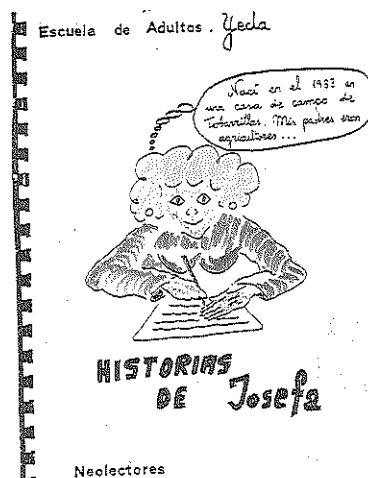 Escuela de Adultos. Yecla
Nací en el 1933 en
una casa de campo de
Totanillas. Mis padres eran
agricultores ...
HISTORIAS
DE Josefa
Neolectores